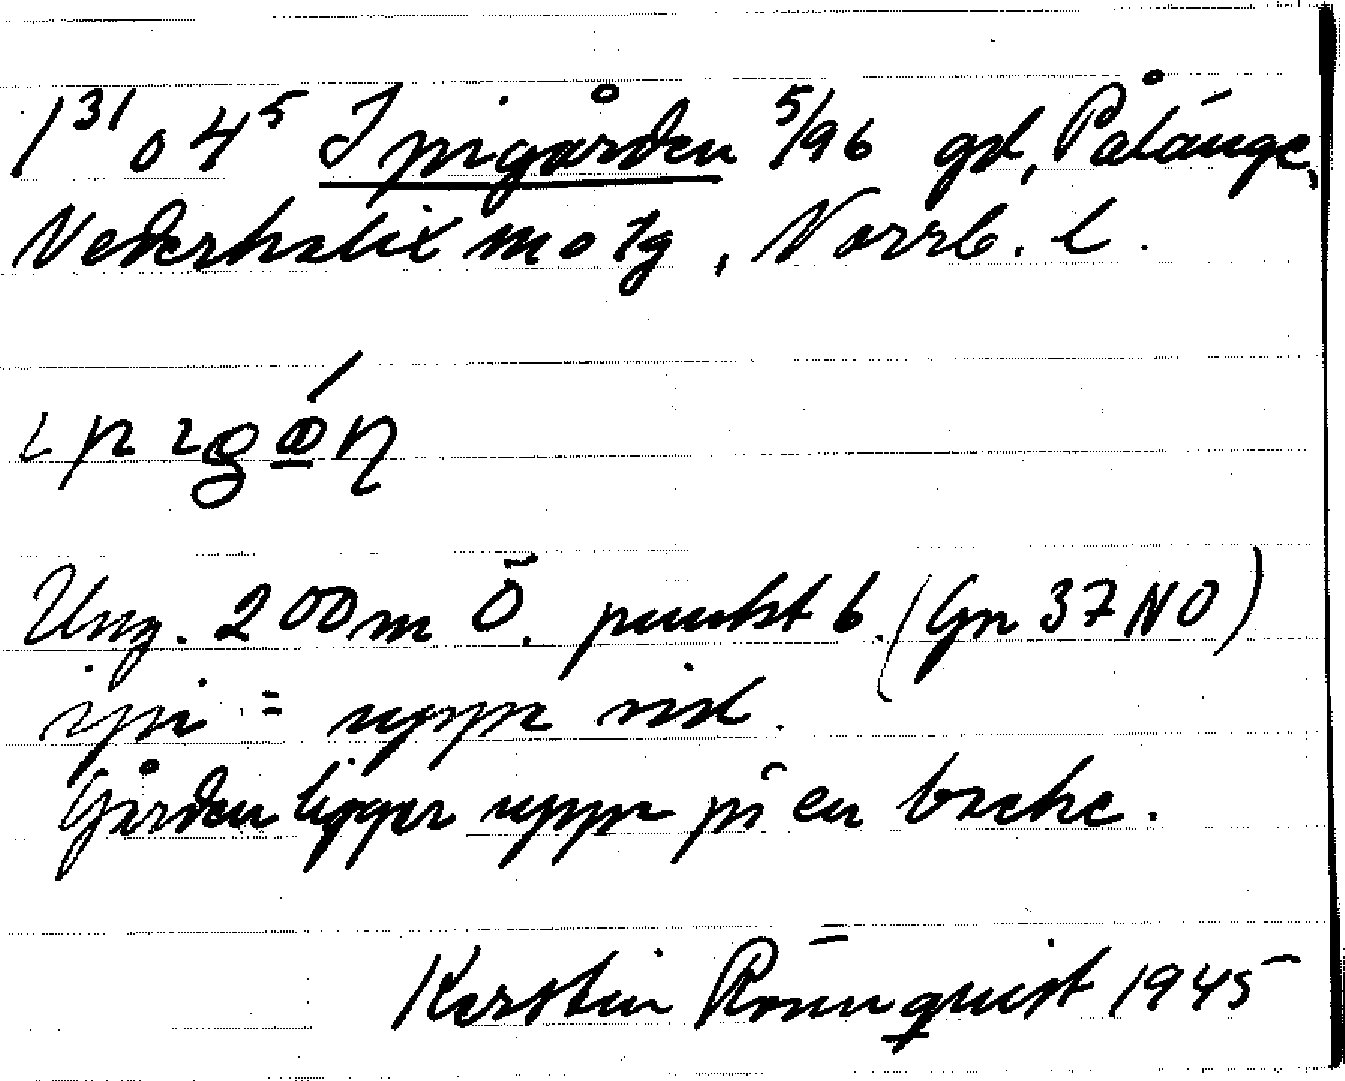 1³¹ o 4⁵ Ipigården 5/96 gd, Pålänge,
Nederkalix m o tg, Norrb. l.
ɩpɩgώ̲n
Ung. 200 m Ö. punkt b. (Gn 37 NO)
ipi = uppe vid.
Gården ligger uppe på en backe.
Kerstin Rönnquist 1945